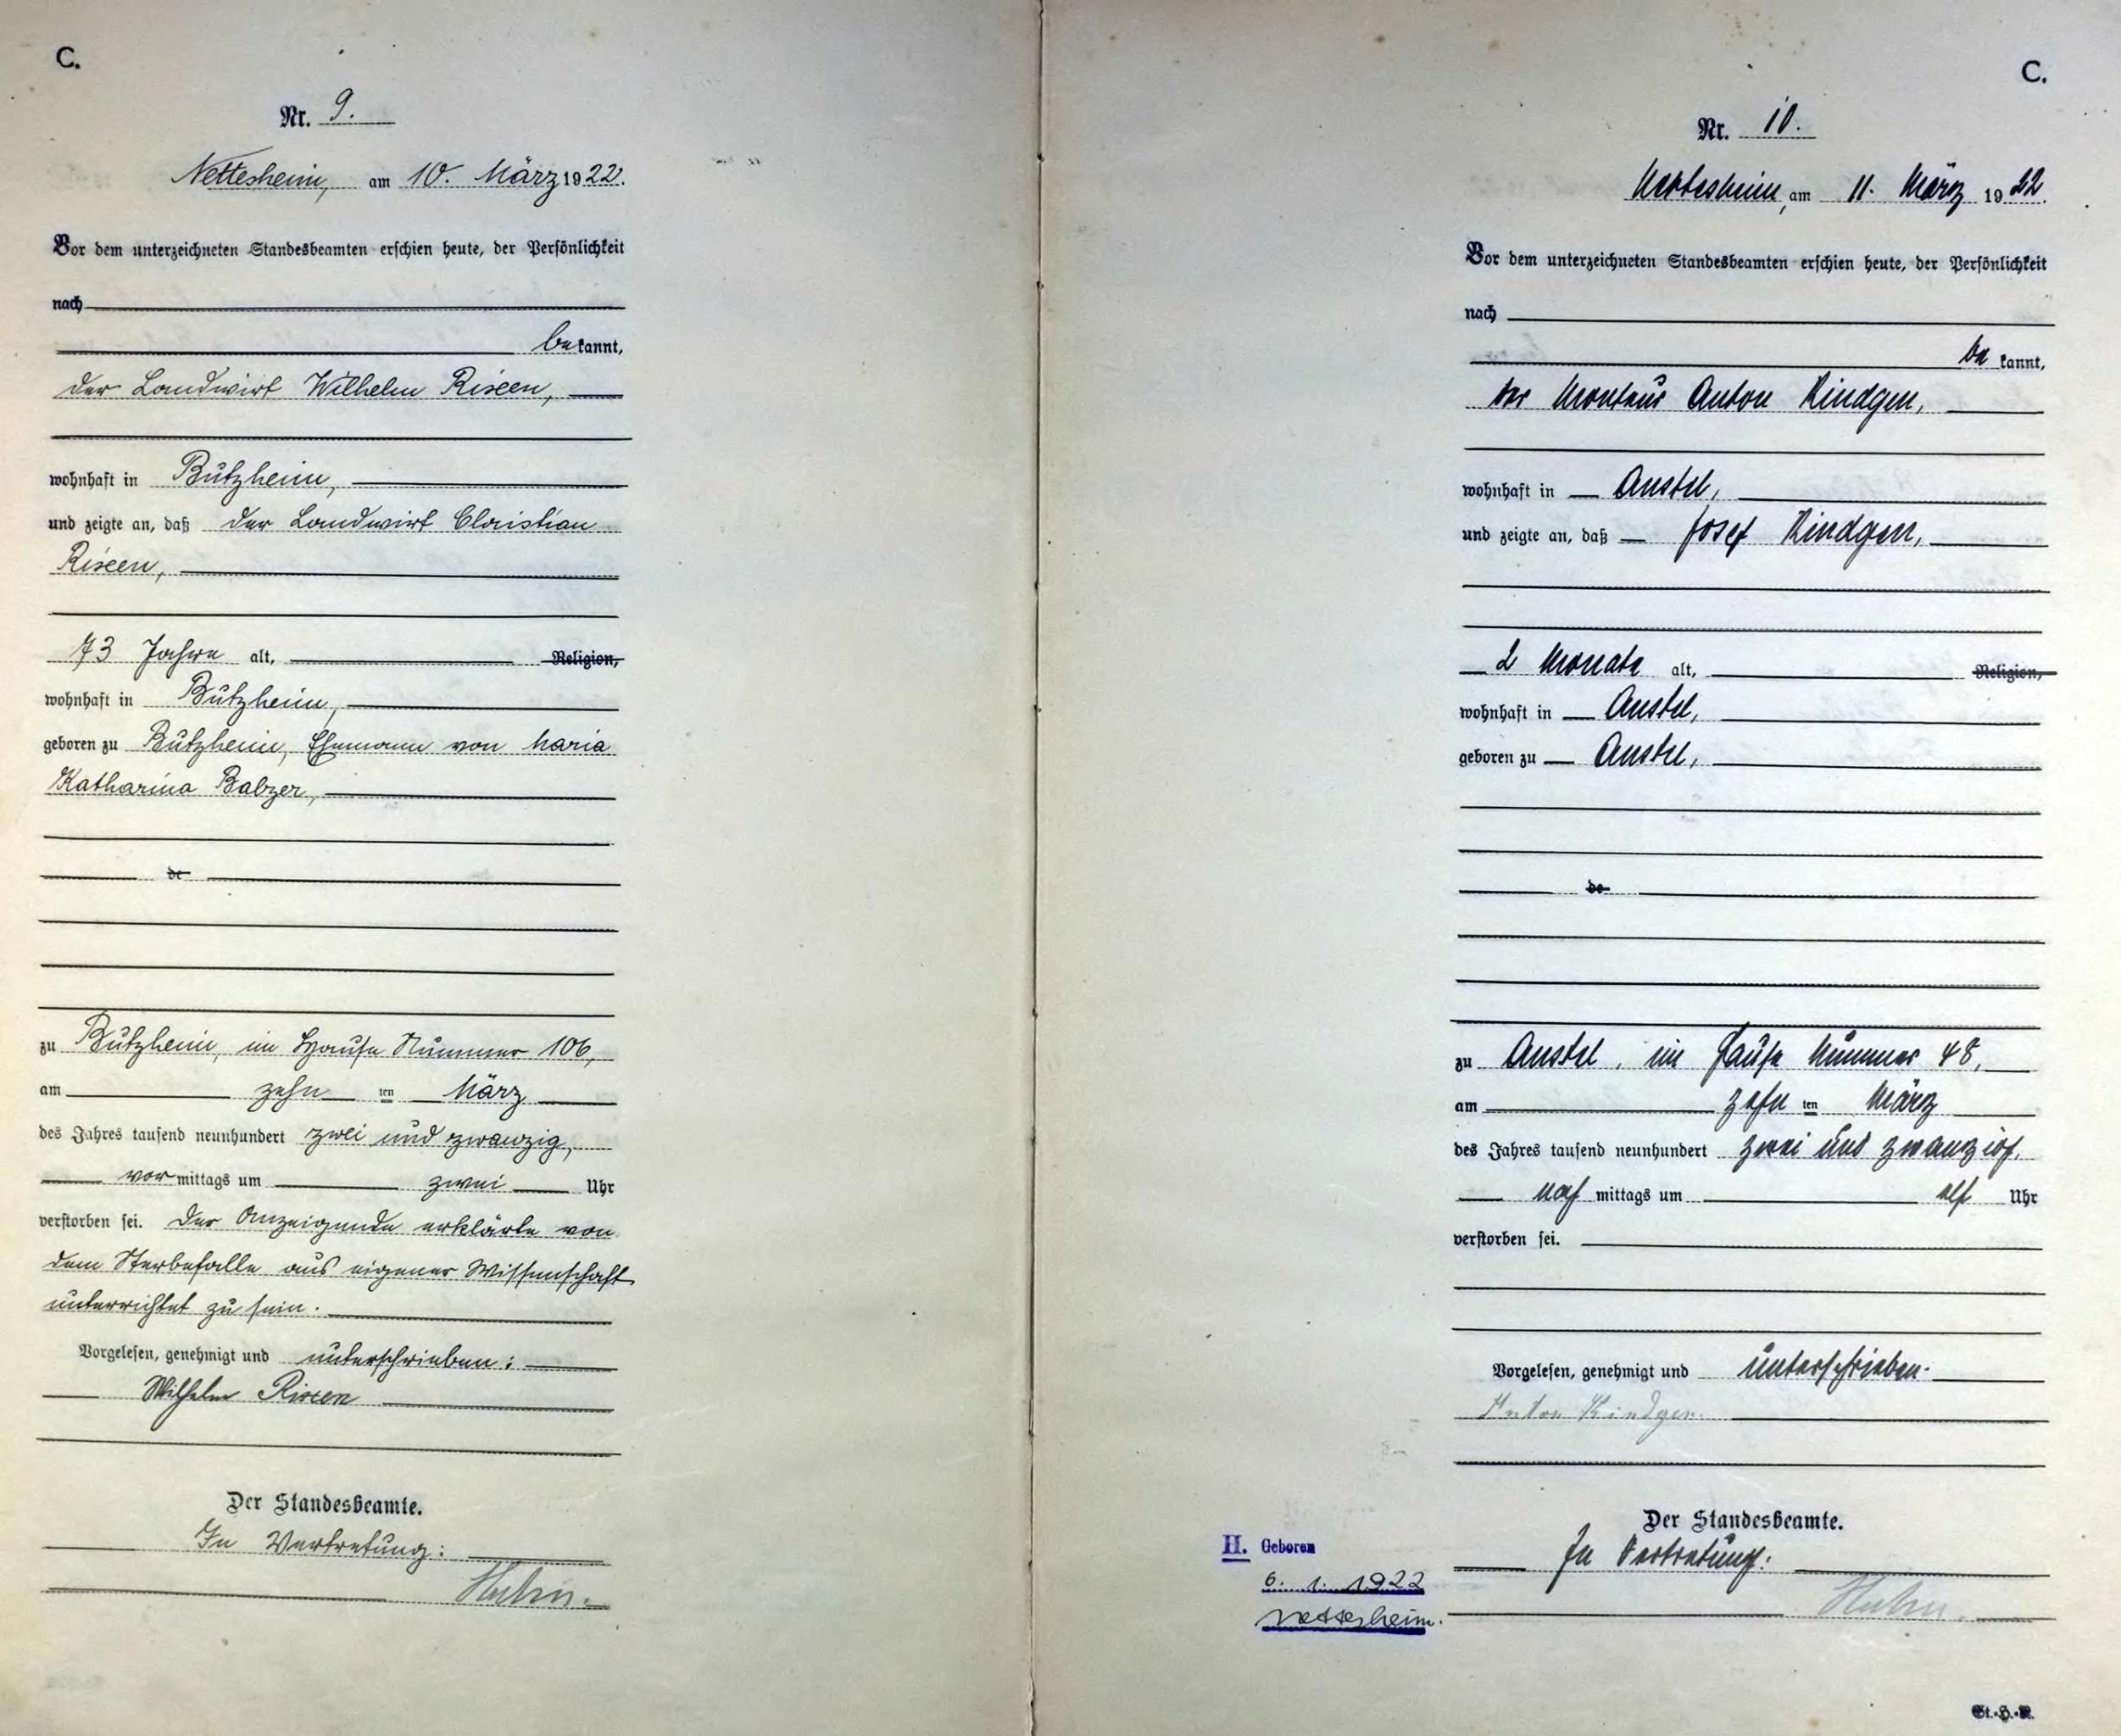 C.
Nr. 9.
Nettesheim, am 10. März 1922.
Vor dem unterzeichneten Standesbeamten erschien heute, der Persönlichkeit
nach
bekannt,
der Landwirt Wilhelm Rixen,
wohnhaft in Butzheim,
und zeigte an, daß der Landwirt Christian
Rixen,
73 Jahre alt, Religion,
wohnhaft in Butzheim,
geboren zu Butzheim, Ehemann von Maria
Katharina Balzer,
de
zu Butzheim, im Hause Nummer 106,
am zehn ten März
des Jahres tausend neunhundert zwei und zwanzig,
vor mittags um zwei Uhr
verstorben sei. Der Anzeigende erklärte von
dem Sterbefalle aus eigener Wissenschaft
unterrichtet zu sein.
Vorgelesen, genehmigt und unterschrieben:
Wilhelm Rixen
Der Standesbeamte.
In Vertretung:
C.
Nr. 10.
Nettesheim, am 11. März 1922.
Vor dem unterzeichneten Standesbeamten erschien heute, der Persönlichkeit
nach
bekannt,
der Monteur Anton Kindgen,
wohnhaft in Anstel,
und zeigte an, daß Josef Kindgen,
2 Monate alt, Religion,
wohnhaft in Anstel,
geboren zu Anstel,
de
zu Anstel, im Hause Nummer 48,
am zehn ten März
des Jahres tausend neunhundert zwei und zwanzig,
nach mittags um elf Uhr
verstorben sei.
Vorgelesen, genehmigt und unterschrieben.
Anton Kindgen.
Der Standesbeamte.
In Vertretung:
H. Geboren
6. 1. 1922
Nettesheim.